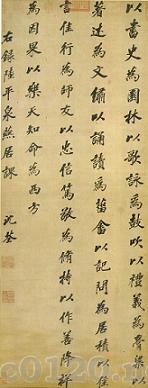 以書史為園林以歌詠為鼓吹以禮義為膏粱以
著述為文繡以誦讀為菑畬以記問為居積以往
言往行為師友以忠信篤敬為脩持以作善降祥
為因果以樂天知命為西方
右錄陸平泉燕居課
沈荃